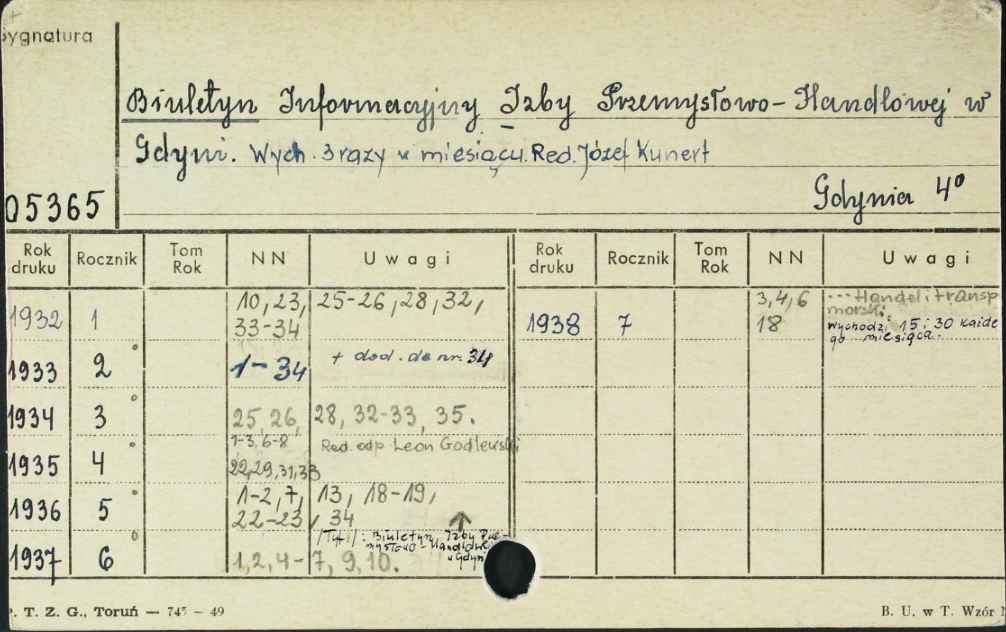 Sygnatura
Biuletyn Informacyjny Izby Przemysłowo-Handlowej w
Gdyni. Wych. 3 razy w miesiącu. Red. Józef Kunert
Gdynia 4°
05365
Rok druku Rocznik Tom Rok NN Uwagi Rok druku Rocznik Tom Rok NN Uwagi
1932 1 10, 23, 25-26, 28, 32,
33-34
1938 7 3, 4, 6
18
... Handel i transp
morski.
Wychodzi 15 i 30 każde
go miesiąca.
1933 2° 1-34 + dod. do nr. 34
1934 3° 25, 26, 28, 32-33, 35.
1935 4° 1-3, 6-8 Red. odp. Leon Godlewski
22, 29, 31, 33
1936 5° 1-2, 7, 13, 18-19,
22-23, 34
/Tyt/: Biuletyn Izby Prze-
mysłowo-Handlowej
w Gdyni
1937 6° 1, 2, 4-7, 9, 10.
P. T. Z. G., Toruń — 745 — 49
B. U. w T. Wzór